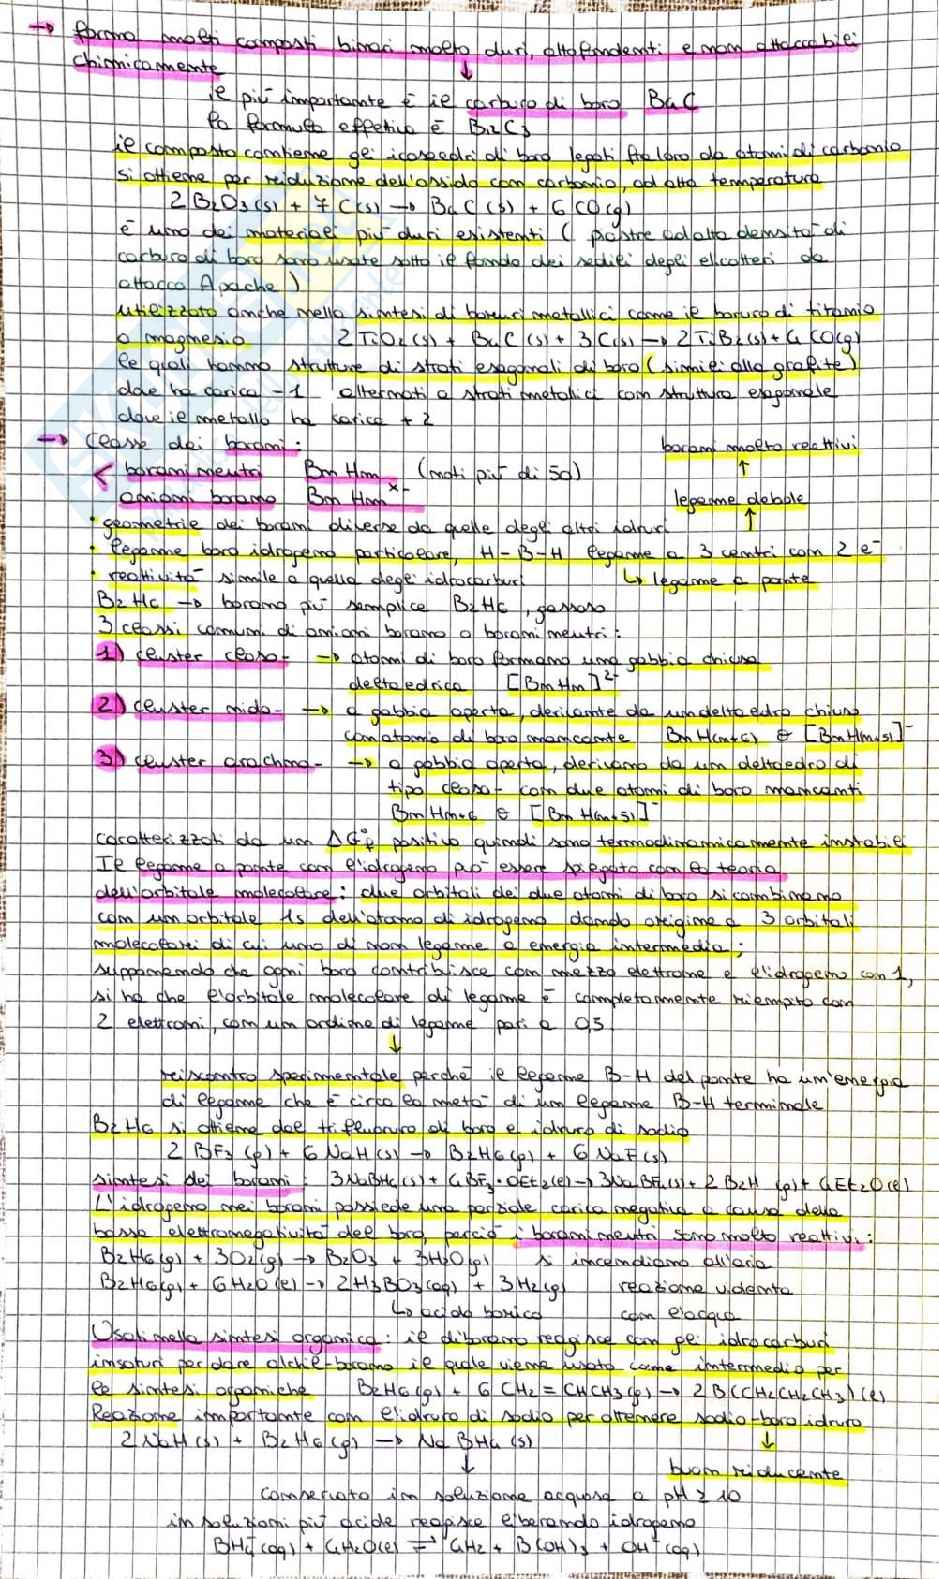 → forma molti composti binari molto duri, altofondenti e non attaccabili
chimicamente
↓
il più importante è il carburo di boro B4C
la formula effettiva è B12C3
il composto contiene gli icosaedri di boro legati fra loro da atomi di carbonio
si ottiene per riduzione dell'ossido con carbonio, ad alta temperatura
2B2O3(s) + 7C(s) → B4C(s) + 6CO(g)
è uno dei materiali più duri esistenti (piastre ad alta densità di
carburo di boro sono usate sotto il fondo dei sedili degli elicotteri da
attacco Apache)
utilizzato anche nella sintesi di boruri metallici come il boruro di titanio
o magnesio 2TiO2(s) + B4C(s) + 3C(s) → 2TiB2(s) + 4CO(g)
le quali hanno strutture di strati esagonali di boro (simili alla grafite)
dove ha carica -1 alternati a strati metallici con struttura esagonale
dove il metallo ha karica +2
→ Classe dei borani: borani molto reattivi
↑
borani neutri BnHm (noti più di 50)
anioni borano BnHm x- legame debole
↑
• geometrie dei borani diverse da quelle degli altri idruri
• legame boro idrogeno particolare, H-B-H legame a 3 centri con 2e-
• reattività simile a quella degli idrocarburi ↳ legame a ponte
B2H6 → borano più semplice B2H6, gassoso
3 classi comuni di anioni borano o borani neutri:
1) cluster closo- → atomi di boro formano una gabbia chiusa
deltaedrica [BnHn]2-
2) cluster nido- → a gabbia aperta, derivante da un deltaedro chiuso
con atomo di boro mancante BnH(n+4) e [BnH(n+5)]-
3) cluster arachno- → a gabbia aperta, derivano da un deltaedro di
tipo closo- con due atomi di boro mancanti
BnHn+6 e [BnH(n+5)]-
caratterizzati da un ΔG°f positivo quindi sono termodinamicamente instabili
Il legame a ponte con l'idrogeno può essere spiegato con la teoria
dell'orbitale molecolare: due orbitali dei due atomi di boro si combinano
con un orbitale 1s dell'atomo di idrogeno dando origine a 3 orbitali
molecolari di cui uno di non legame a energia intermedia;
supponendo che ogni boro contribuisce con mezzo elettrone e l'idrogeno con 1,
si ha che l'orbitale molecolare di legame è completamente riempito con
2 elettroni, con un ordine di legame pari a 0,5
↓
riscontro sperimentale perché il legame B-H del ponte ha un'energia
di legame che è circa la metà di un legame B-H terminale
B2H6 si ottiene dal trifluoruro di boro e idruro di sodio
2BF3(g) + 6NaH(s) → B2H6(g) + 6NaF(s)
sintesi dei borani: 3NaBH4(s) + 4BF3·OEt2(l) → 3NaBF4(s) + 2B2H (g) + 4Et2O(l)
L'idrogeno nei borani possiede una parziale carica negativa a causa della
bassa elettronegatività del boro, perciò i borani neutri sono molto reattivi:
B2H6(g) + 3O2(g) → B2O3 + 3H2O(g) si incendiano all'aria
B2H6(g) + 6H2O(l) → 2H3BO3(aq) + 3H2(g) reazione violenta
↳ acido borico con l'acqua
Usati nella sintesi organica: il diborano reagisce con gli idrocarburi
insaturi per dare alchil-borano il quale viene usato come intermedio per
le sintesi organiche B2H6(g) + 6CH2=CHCH3(g) → 2B(CH2CH2CH3)(l)
Reazione importante con l'idruro di sodio per ottenere sodio-boro idruro
2NaH(s) + B2H6(g) → NaBH4(s) ↓
↓ buon riducente
conservato in soluzione acquosa a pH ≥ 10
in soluzioni più acide reagisce liberando idrogeno
BH4-(aq) + 4H2O(l) ⇌ 4H2 + B(OH)3 + OH-(aq)